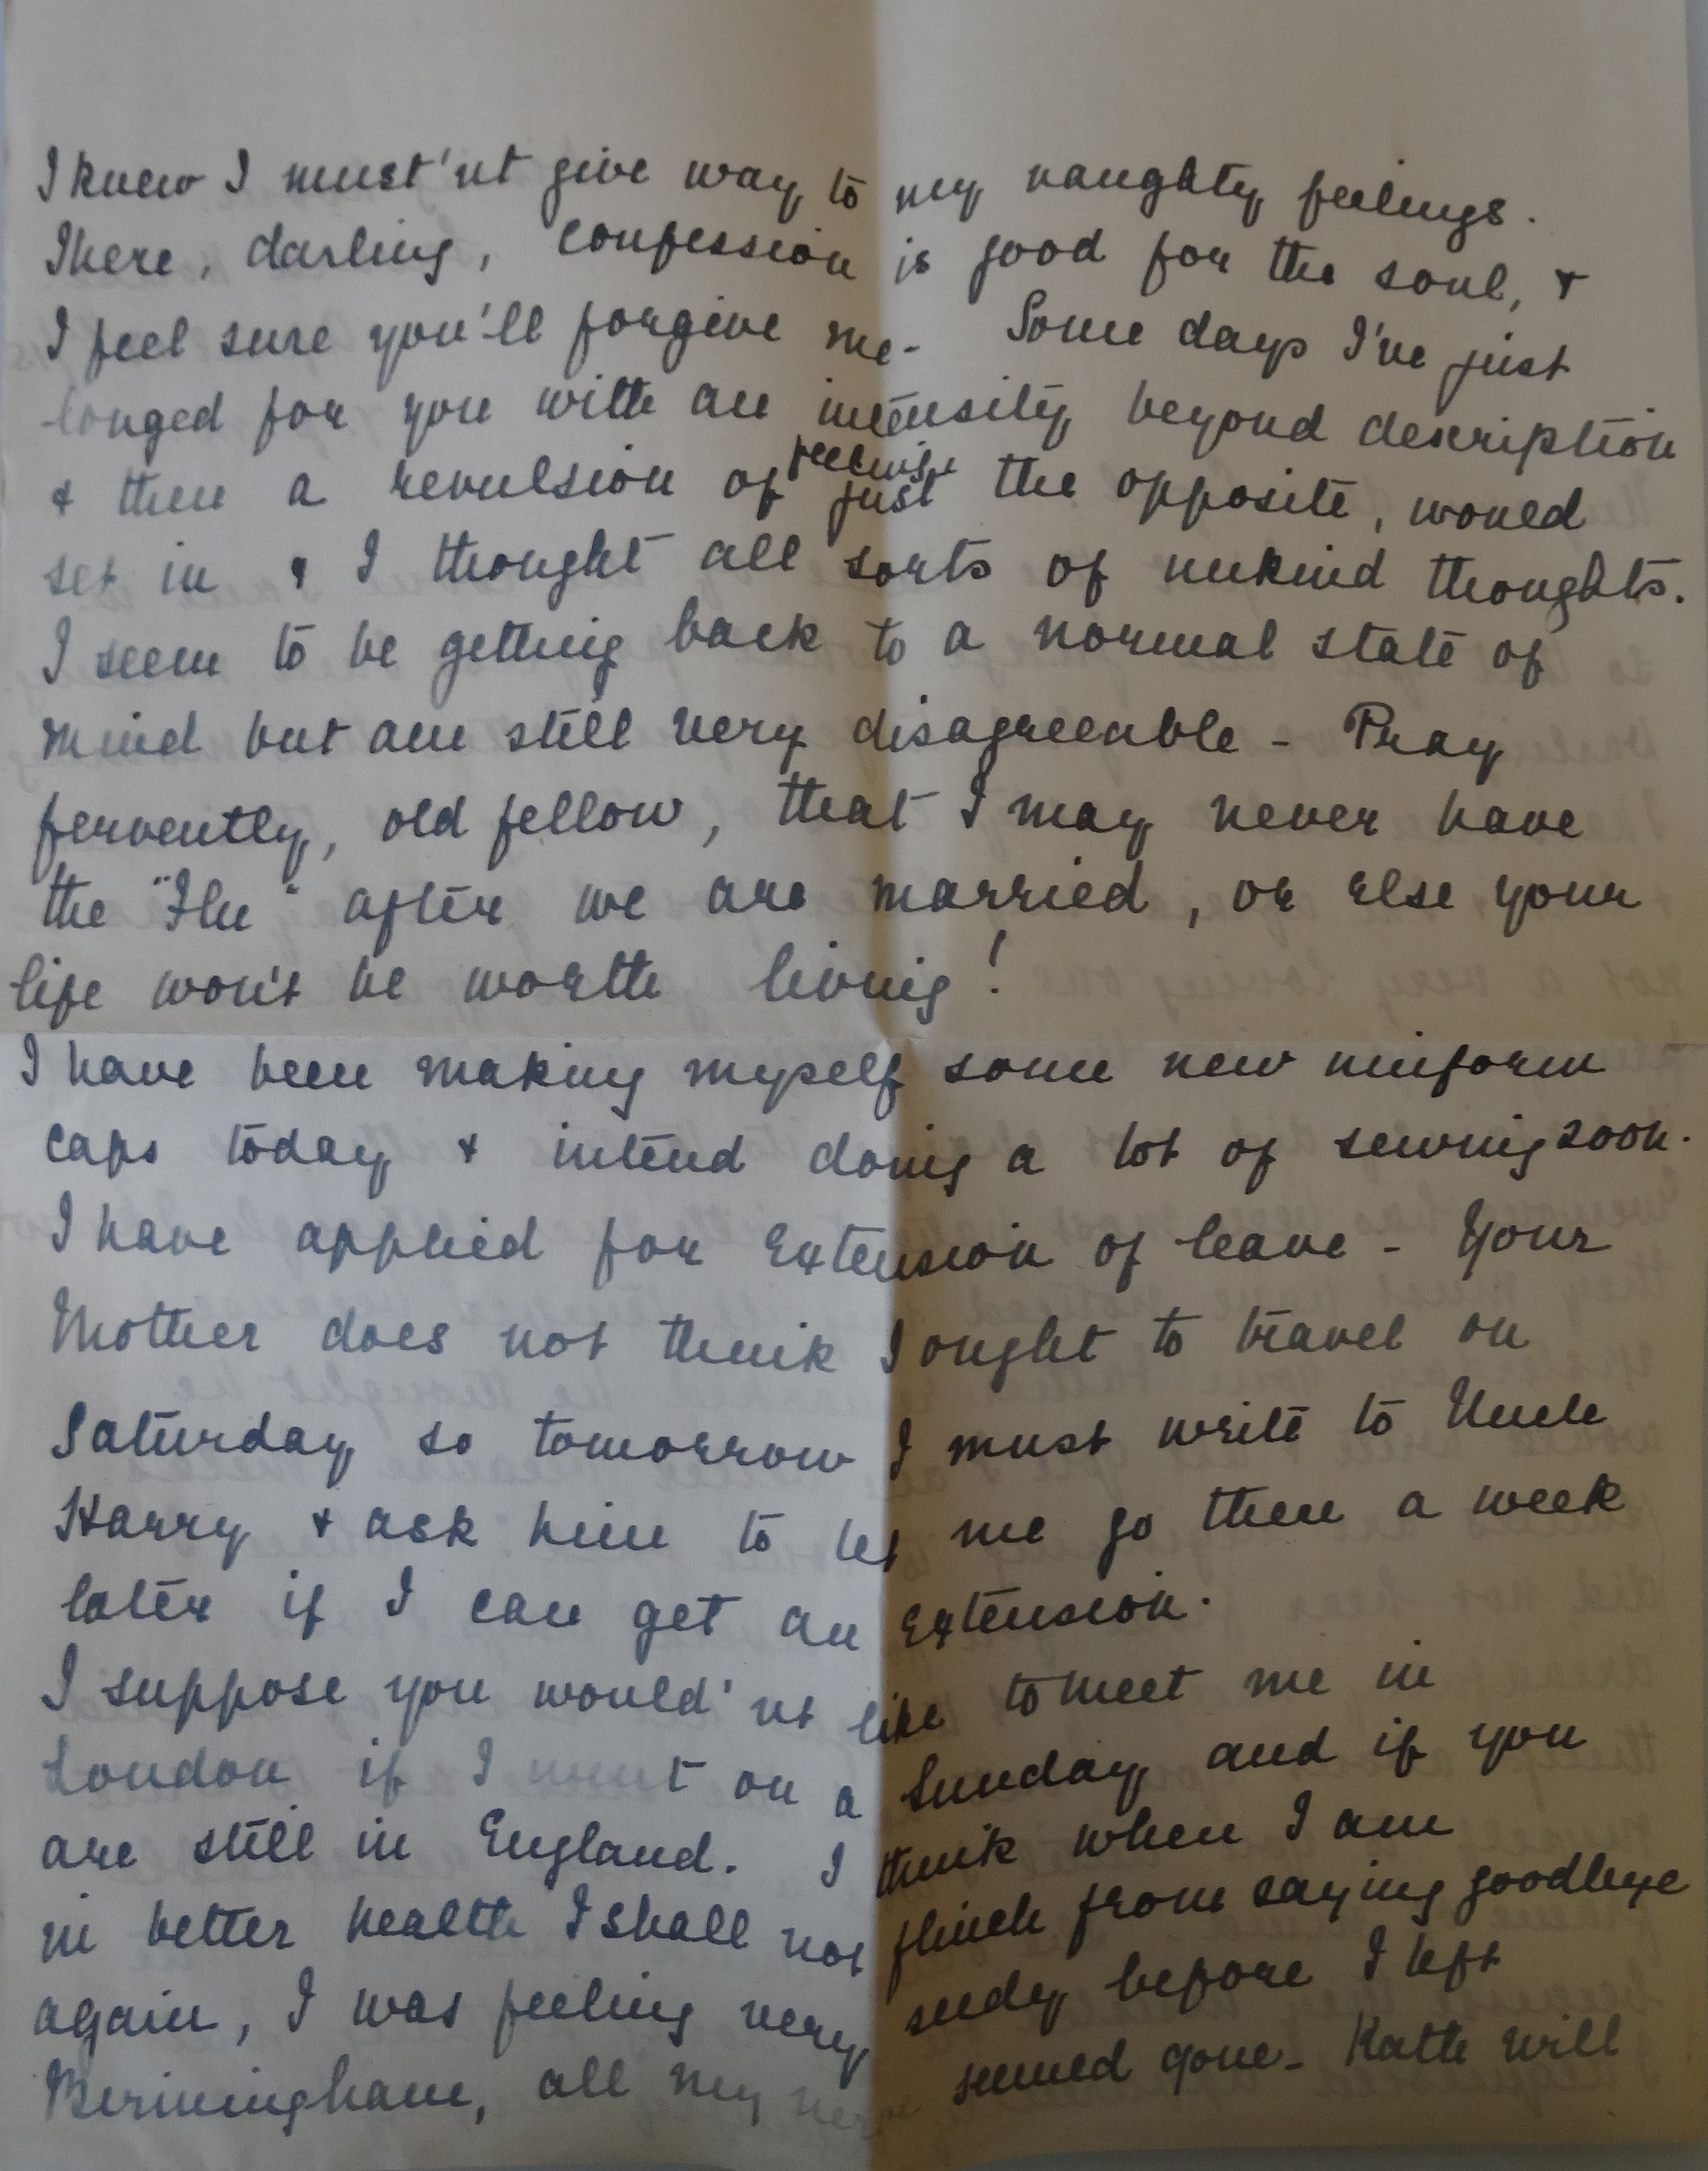 I knew I must'nt give way to my naughty feelings.
There, darling, confession is good for the soul, &
I feel sure you'll forgive me - Some days I've just
longed for you with an intensity beyond description
& then a revulsion of feeling, just the opposite, would
set in & I thought all sorts of unkind thoughts.
I seem to be getting back to a normal state of
mind but am still very disagreeable - Pray
fervently, old fellow, that I may never have
the "Flu" after we are married, or else your
life won't be worth living!
I have been making myself some new uniform
caps today & intend doing a lot of sewing soon.
I have applied for Extension of leave - Your
Mother does not think I ought to travel on
Saturday so tomorrow I must write to Uncle
Harry & ask him to let me go then a week
later if I can get an Extension.
I suppose you would'nt like to meet me in
London if I went on a Sunday and if you
are still in England. I think when I am
in better health I shall not flinch from saying goodbye
again, I was feeling very seedy before I left
Birmingham, all my nerve seemed gone - Kath will